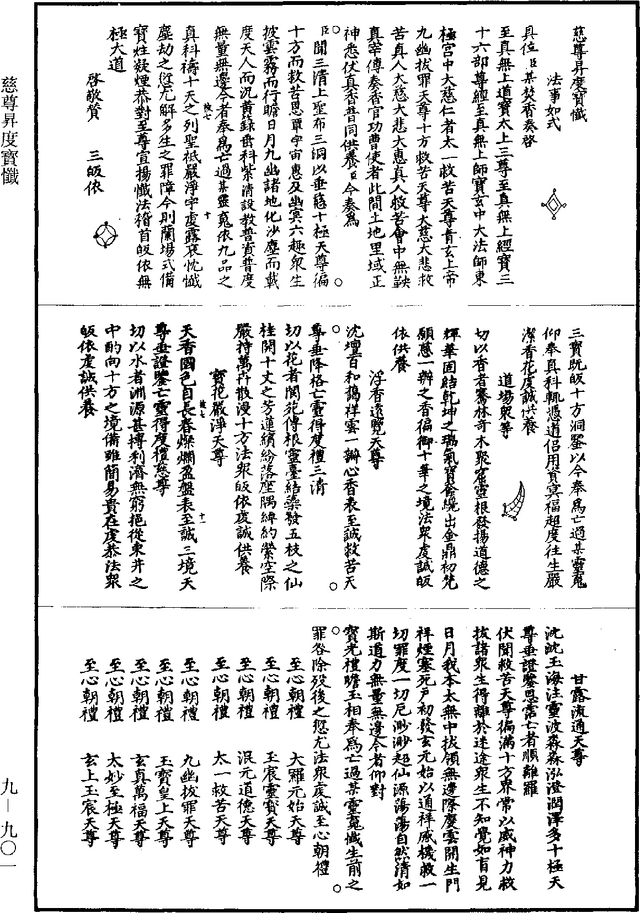 慈尊昇度寶懺
法事如式
具位臣某焚香奏啓
至真無上道寶太上三尊至真無上經寶三
十六部尊經至真無上師寶玄中大法師東
極宮中大慈仁者太一救苦天尊青玄上帝
九幽拔罪天尊十方救苦天尊大慈大悲救
苦真人大慈大悲大惠真人救苦會中無鞅
真宰傳奏香官功曹使者此間土地里域正
神悉仗真香普同供養臣今奏為
臣聞三清上聖布三洞以垂慈十極天尊徧
十方而救苦恩覃宇宙惠及幽冥六趣眾生
披雲霧而行瞻日月九幽諸地化沙塵而載
度天人而沉黃籙垂科紫清設教普資普度
無量無邊今者奉為亡過某靈魂依九品之
真科禱十天之列聖祇嚴淨宇虔露哀忱懺
塵劫之愆尤解多生之罪障今則蘭場式備
寶炷欲煙恭對至尊宣揚懺法稽首皈依無
極大道
啓敬贊 三皈依
三寶既皈十方洞鑒以今奉為亡過某靈魂
仰奉真科軌憑道侶用資冥福超度往生嚴
潔香花虔誠供養
道場眾等
切以香者騫林奇木聚窟靈根發揚道德之
輝華固結乾坤之瑞氣寶奩繞出金鼎初焚
願慈一瓣之香徧御十華之境法眾虔誠皈
依供養
浮香遠覽天尊
沈壇百和靄祥雲一瓣心香表至誠救苦天
尊垂降格亡靈得度禮三清
切以花者閬苑傳根靈臺結蘂發五枝之仙
桂開十丈之芳蓮繽紛落座隅綽約縈空際
嚴持萬卉散漫十方法眾皈依虔誠供養
寶花嚴淨天尊
天香國色自長春燦爛盈盤表至誠三境天
尊垂證鑒亡靈得度禮慈尊
切以水者淵源甚博利濟無窮挹從東井之
中酌向十方之境備雖簡易貴在虔恭法眾
皈依虔誠供養
甘露流通天尊
沈沈玉海注靈波淼淼泓澄潤澤多十極天
尊垂證鑒恩霑亡者順離羅
伏聞救苦天尊徧滿十方界常以威神力救
拔諸眾生得離於迷途眾生不知覺如盲見
日月我本太無中拔領無邊際慶雲開生門
祥煙塞死戶初發玄元始以通祥感機救一
切罪度一切厄渺渺超仙源蕩蕩自然清如
斯道力無量無邊今者仰對
寶光禮瞻玉相奉為亡過某靈魂懺生前之
罪咎除歿後之愆尤法眾虔誠至心朝禮
至心朝禮 大羅元始天尊
至心朝禮 玉宸靈寶天尊
至心朝禮 混元道德天尊
至心朝禮 太一救苦天尊
至心朝禮 九幽拔罪天尊
至心朝禮 玉寶皇上天尊
至心朝禮 玄真萬福天尊
至心朝禮 太妙至極天尊
至心朝禮 玄上玉宸天尊
慈尊昇度寶懺
九—九〇一